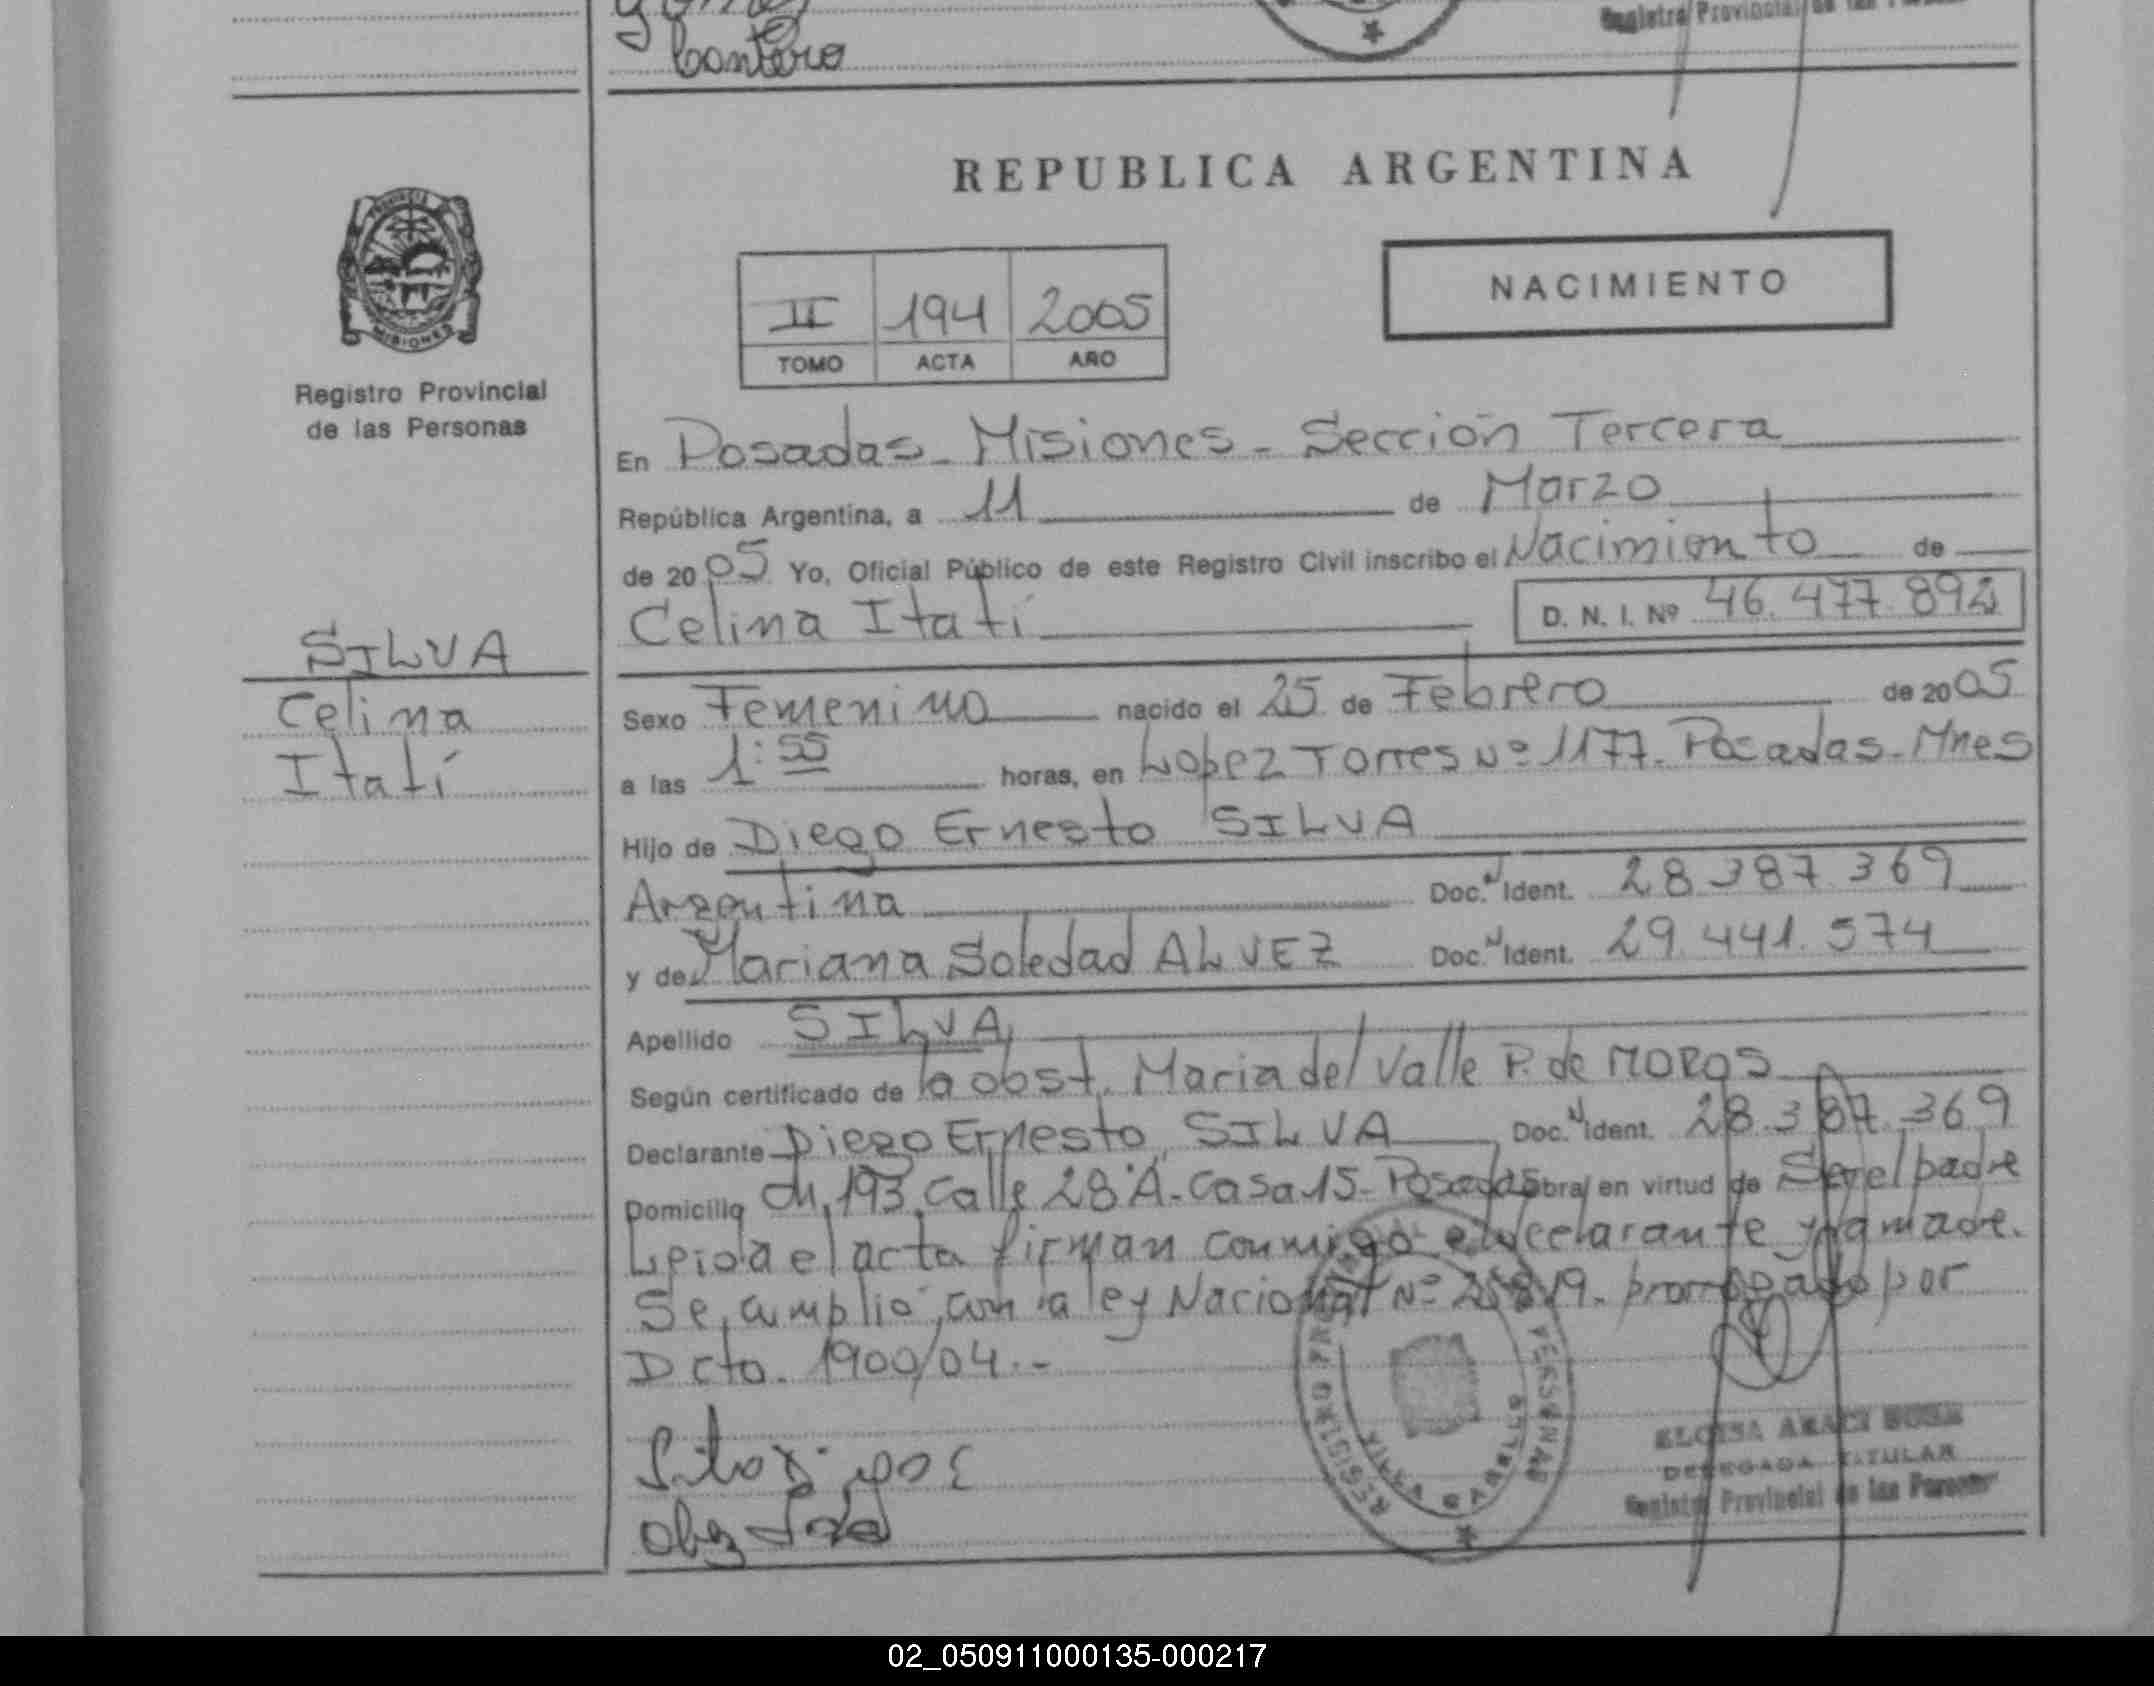 Cantero
Registro Provincial de las
REPUBLICA ARGENTINA
PROVINCIA
MISIONES
Registro Provincial
de las Personas
II 194 2005
TOMO ACTA AÑO
NACIMIENTO
SILVA
Celina
Itatí
En Posadas - Misiones - Sección Tercera
República Argentina, a 11 de Marzo
de 2005 Yo, Oficial Público de este Registro Civil inscribo el Nacimiento de
Celina Itatí D. N. I. Nº 46.477.892
Sexo Femenino nacido el 25 de Febrero de 2005
a las 1:55 horas, en Lopez Torres Nº 1177. Posadas - Mnes
Hijo de Diego Ernesto SILVA
Argentina Doc. Ident. 28.387.369
y de Mariana Soledad ALVEZ Doc. Ident. 29.441.574
Apellido SILVA
Según certificado de la obst. Maria del Valle P. de MOROS
Declarante Diego Ernesto SILVA Doc. Ident. 28.387.369
Domicilio Ch. 193 Calle 28 A - Casa 15 - Posadas obra en virtud de Ser el padre
Leida el acta firman conmigo el declarante y la madre.
Se cumplió con la ley Nacional Nº 25819. prorrogado por
Dcto. 1900/04.-
REGISTRO PERSONAS
ELOISA ARACI
DELEGADA TITULAR
Registro Provincial de las Personas
02_050911000135-000217